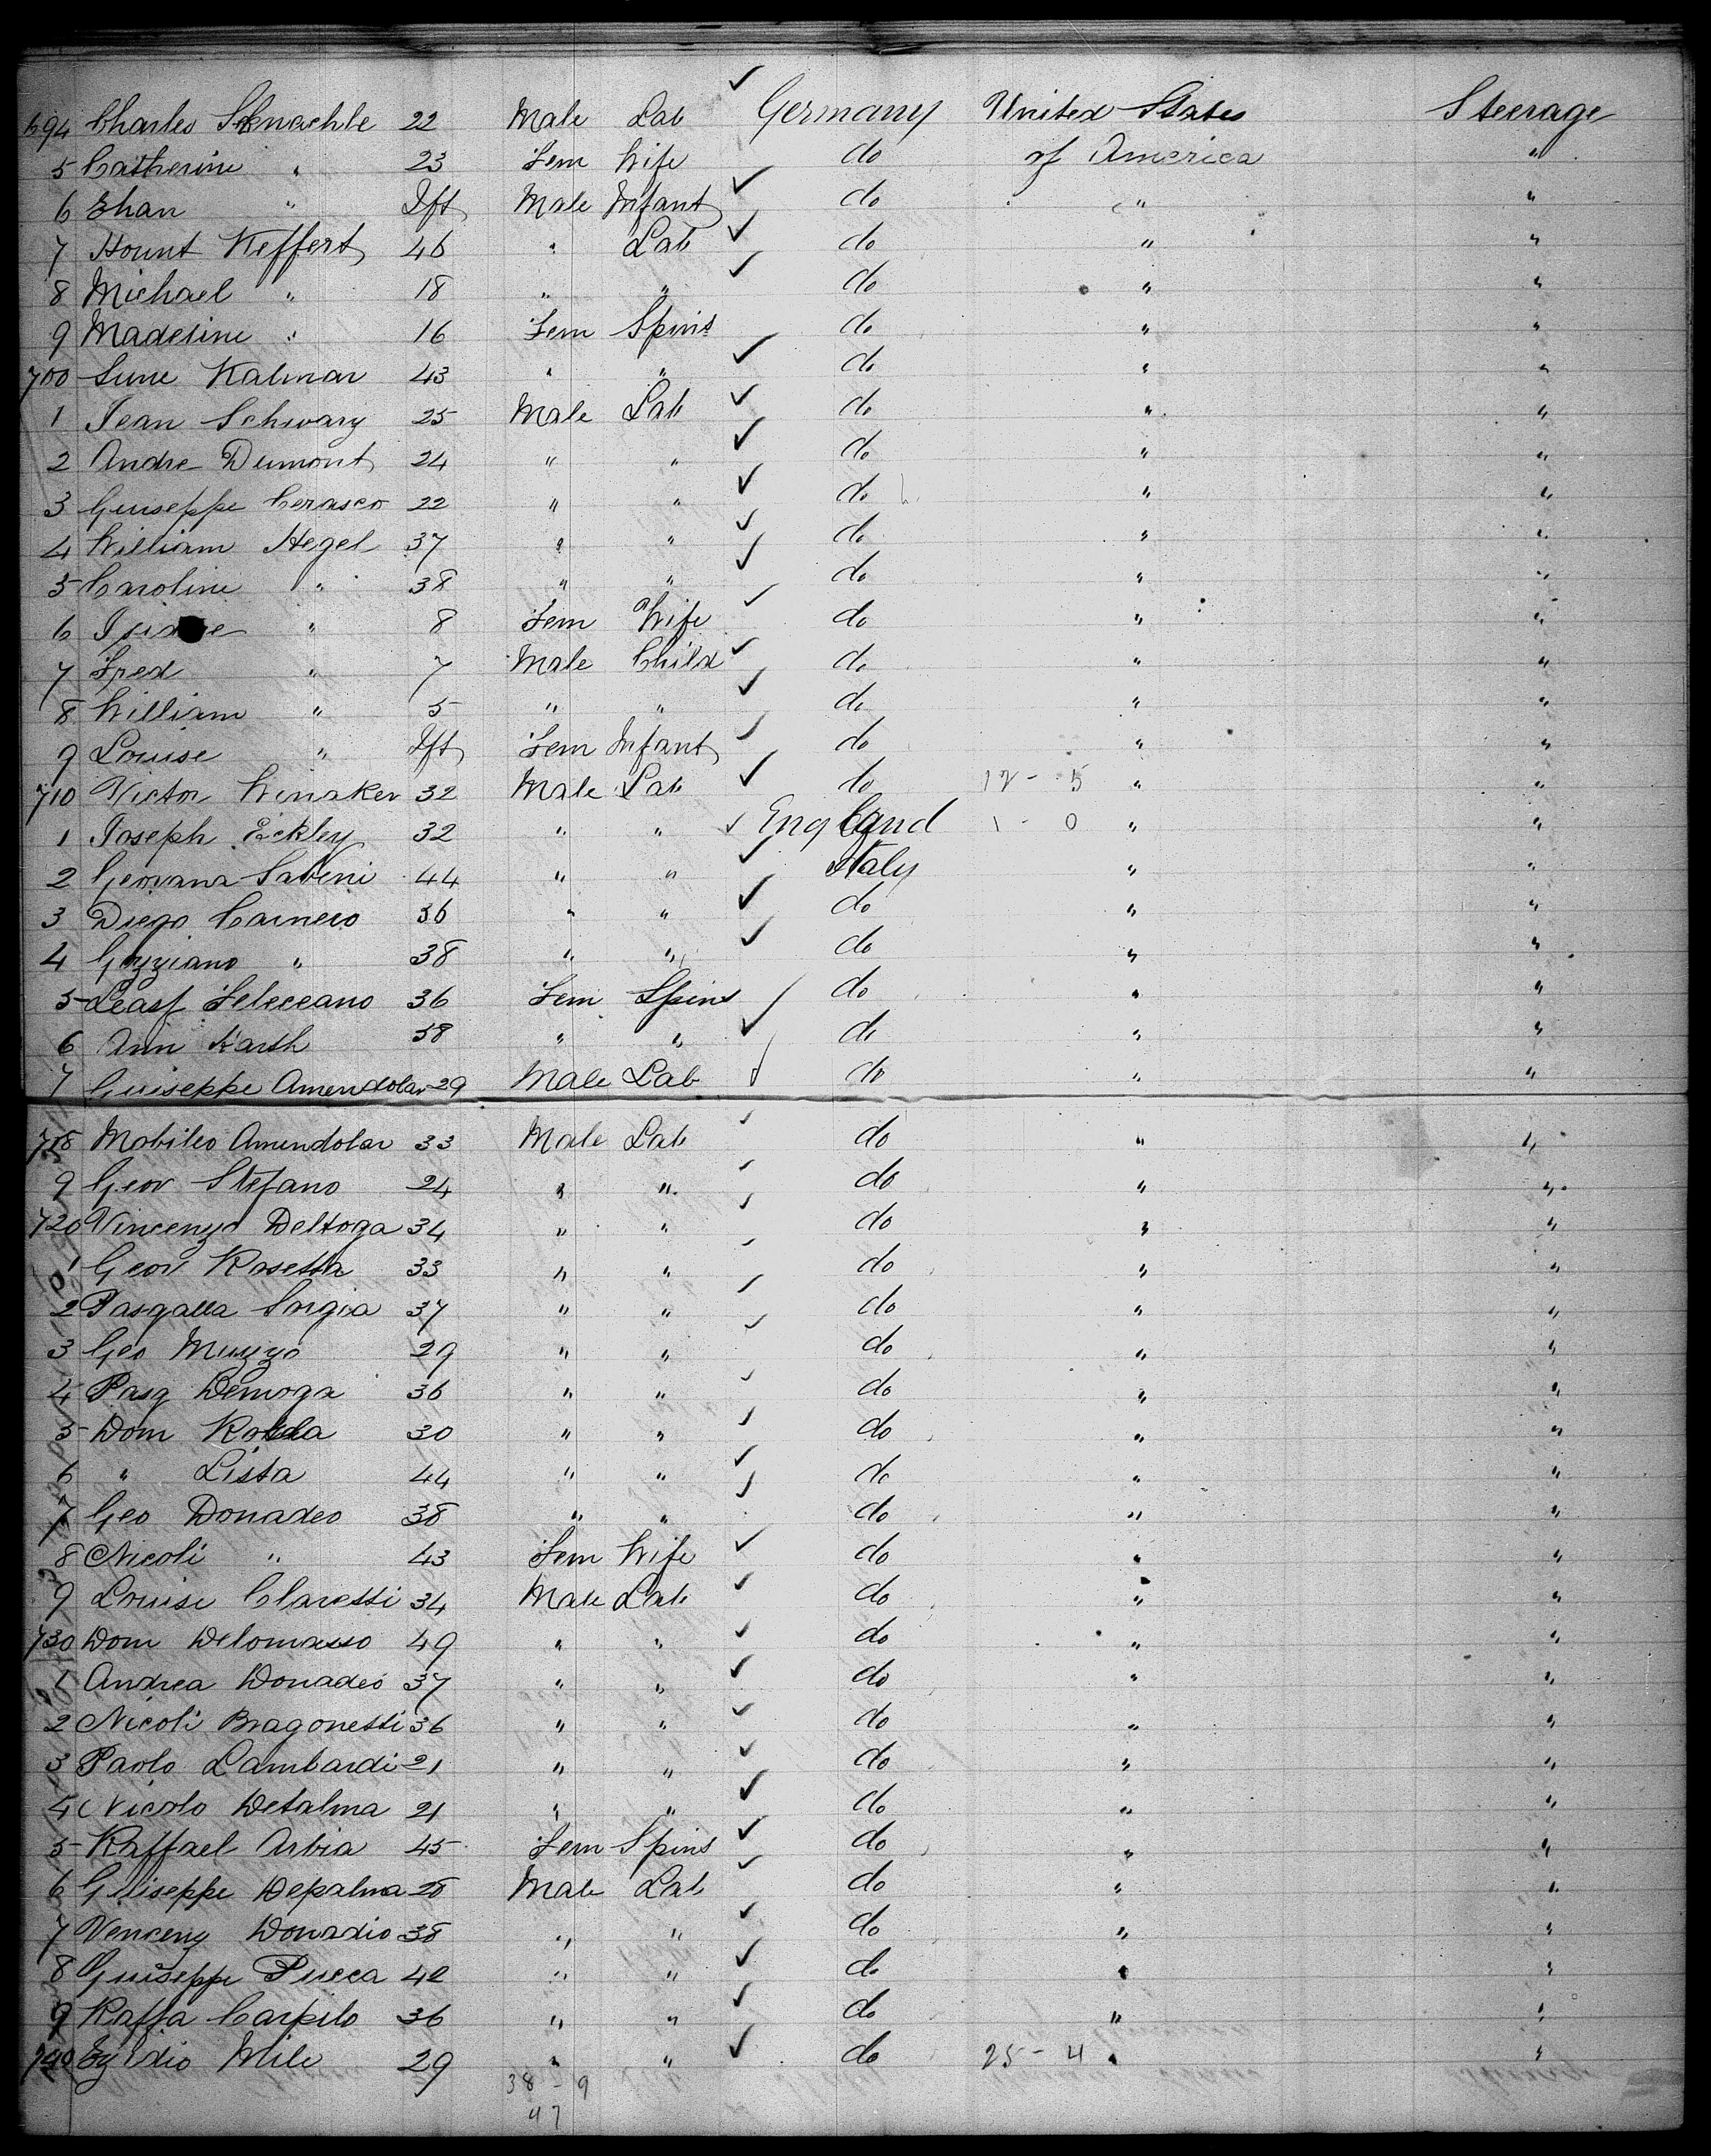 694 Charles Schnaehle 22 Male Lab Germany United States Steerage
5 Catherine " 23 Fem Wife do of America "
6 Ehan " Ift Male Infant do " "
7 Hount Keffert 46 " Lab do " "
8 Michael " 18 " " do " "
9 Madeline " 16 Fem Spins do " "
700 Lune Kalmar 43 " " do " "
1 Jean Schwarz 25 Male Lab do " "
2 Andre Dumont 24 " " do " "
3 Guiseppe Cerasco 22 " " do " "
4 William Hegel 37 " " do " "
5 Caroline " 38 " " do " "
6 " 8 Fem Wife do " "
7 Fred " 7 Male Child do " "
8 William " 5 " " do " "
9 Louise " Ift Fem Infant do " "
710 Victor Winaker 32 Male Lab do 12 - 5 " "
1 Joseph Eckley 32 " " England 1 - 0 " "
2 Geovana Sabeni 44 " " Italy " "
3 Diego Carnero 36 " " do " "
4 Gozziano " 38 " " do " "
5 Leasf Feleceano 36 Fem Spins do " "
6 Ann Karsh 38 " " do " "
7 Guiseppe Amendolar 29 Male Lab do " "
718 Mobileo Amendolar 33 Male Lab do " "
9 Geov Stefano 24 " " do " "
720 Vincenzo Deltoga 34 " " do " "
1 Geov Rosetta 33 " " do " "
2 Pasgalla Sorgia 37 " " do " "
3 Geo Muzzo 29 " " do " "
4 Pasq Demoga 36 " " do " "
5 Dom 30 " " do " "
6 " Lista 44 " " do " "
7 Geo Donadeo 38 " " do " "
8 Nicoli " 43 Fem Wife do " "
9 Louise Claretti 34 Male Lab do " "
730 Dom Delomasso 49 " " do " "
1 Andrea Donadeo 37 " " do " "
2 Nicoli Bragonetti 36 " " do " "
3 Paolo Lambardi 21 " " do " "
4 Nicolo Detalma 21 " " do " "
5 Raffael Arbia 45 Fem Spins do " "
6 Guiseppe Depalma 28 Male Lab do " "
7 Vencenz Donadio 38 " " do " "
8 Guiseppe Pucca 42 " " do " "
9 Raffa Carpilo 36 " " do " "
740 Egidio Mile 29 " " do 25 - 4 " "
38 - 9
47